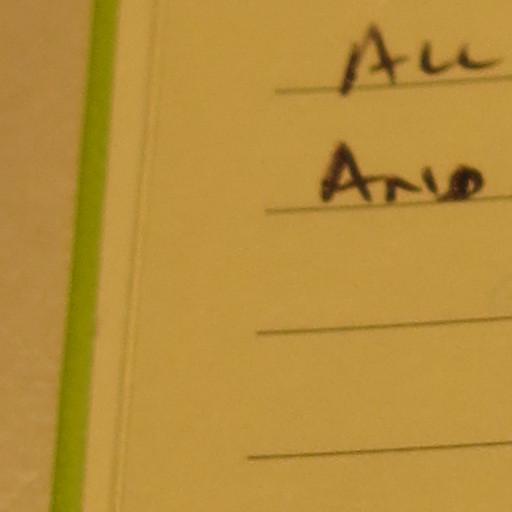 All
And